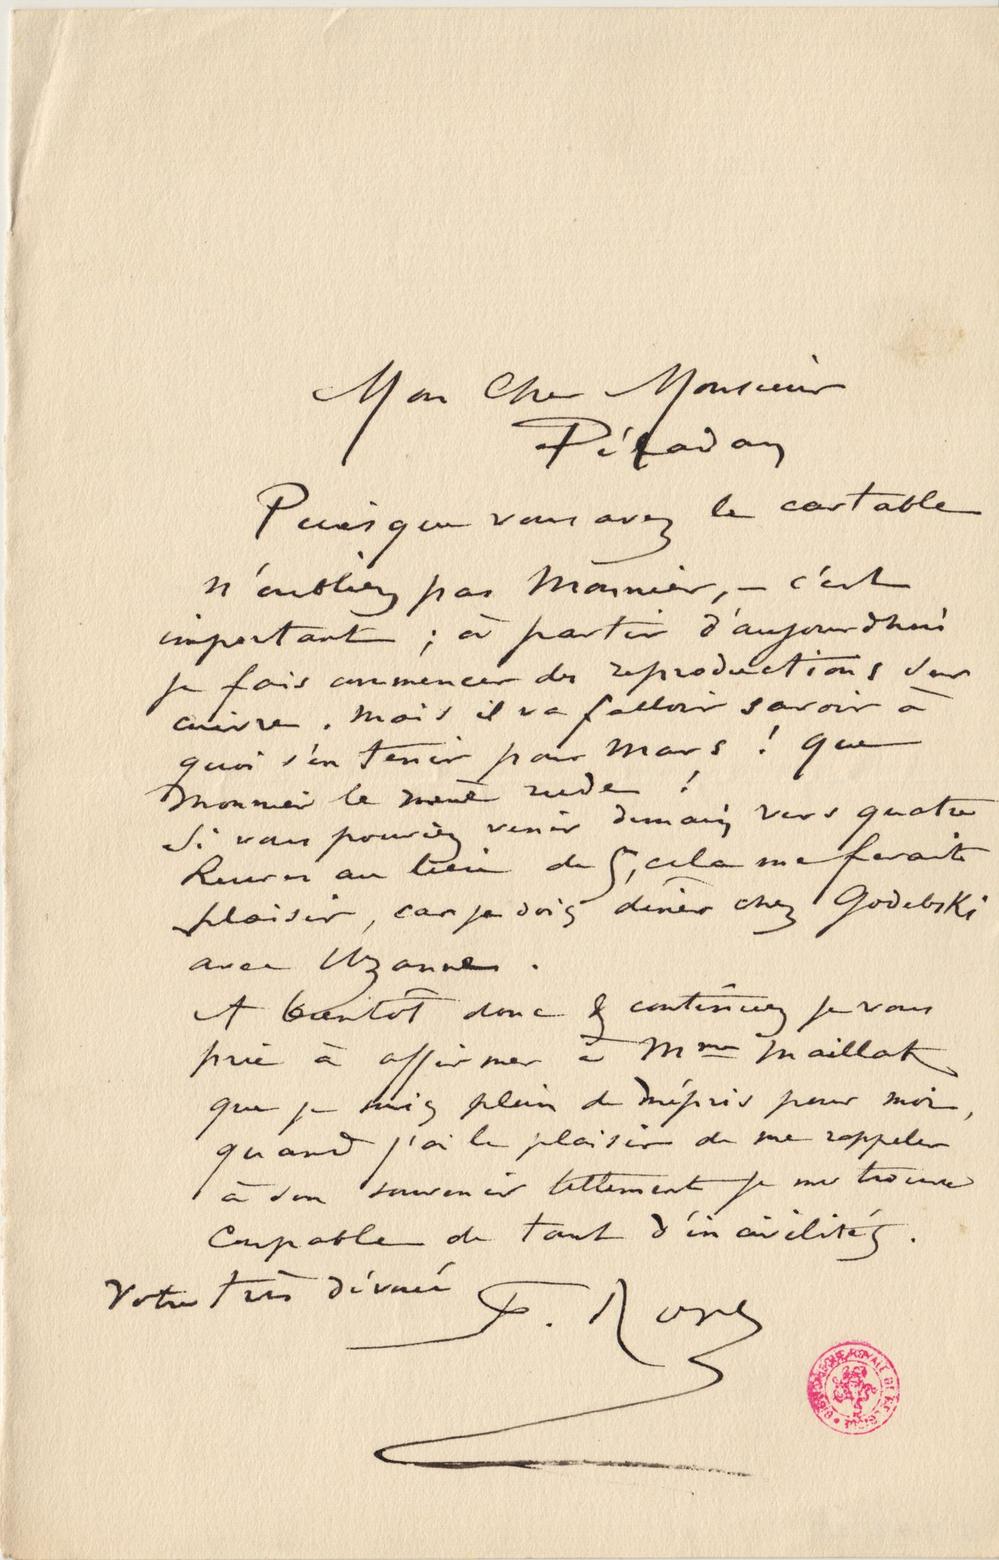 Mon Cher Monsieur
Péladan
Puisque vous avez le cartable
n'oubliez pas Monnier, – c'est
important ; à partir d'aujourdhui
je fais commencer des reproductions sur
cuivre. Mais il va falloir savoir à
quoi s'en tenir pour Mars ! Que
Monnier le mène rude !
Si vous pouviez venir demain vers quatre
heures au lieu de 5, cela me ferait
plaisir, car je dois dîner chez Godebski
avec Uzanne.
A bientôt donc & continuez je vous
prie à affirmer à Mme Maillat
que je suis plein de mépris pour moi,
quand j'ai le plaisir de me rappeler
à son souvenir tellement je me trouve
Coupable de tant d'incivilités.
Votre très dévoué
F. Rops
BIBLIOTHEQUE ROYALE DE BELGIQUE